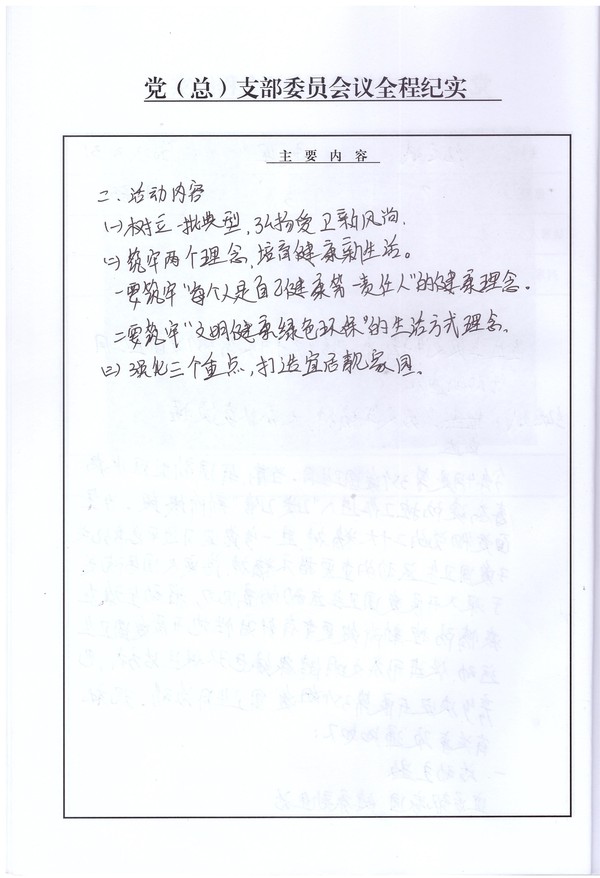 党（总）支部委员会议全程纪实
主要内容
二.活动内容
(一)树立一批典型,弘扬爱卫新风尚.
(二)筑牢两个理念,培育健康新生活。
一要筑牢“每个人是自己健康第一责任人”的健康理念.
二要筑牢“文明健康绿色环保”的生活方式理念.
(三)强化三个重点,打造宜居靓家园.